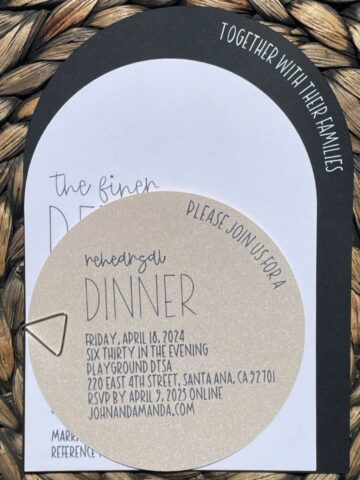 TOGETHER WITH THEIR FAMILIES
the finer
PLEASE JOIN US FOR A
rehearsal
DINNER
FRIDAY, APRIL 18, 2024
SIX THIRTY IN THE EVENING
PLAYGROUND DTSA
220 EAST 4TH STREET, SANTA ANA, CA 92701
RSVP BY APRIL 9, 2025 ONLINE
JOHNANDAMANDA.COM
REFERENCE